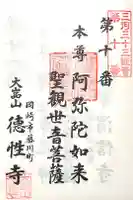 三河三十三観音
第十番
本尊阿弥陀如来
聖観世音菩薩
岡崎市藤川町
徳性寺